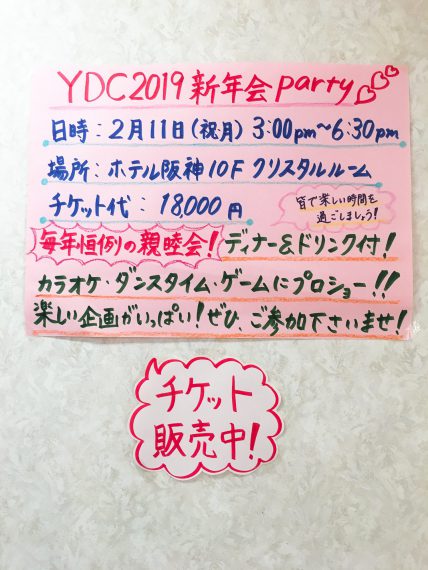 YDC2019 新年会 party
日時：2月11日(祝.月) 3:00pm～6:30pm
場所：ホテル阪神10F クリスタルルーム
チケット代：18,000円
皆で楽しい時間を
過ごしましょう!
毎年恒例の親睦会! ディナー&ドリンク付!
カラオケ・ダンスタイム・ゲームにプロショー!!
楽しい企画がいっぱい!ぜひ、ご参加下さいませ!
チケット
販売中!